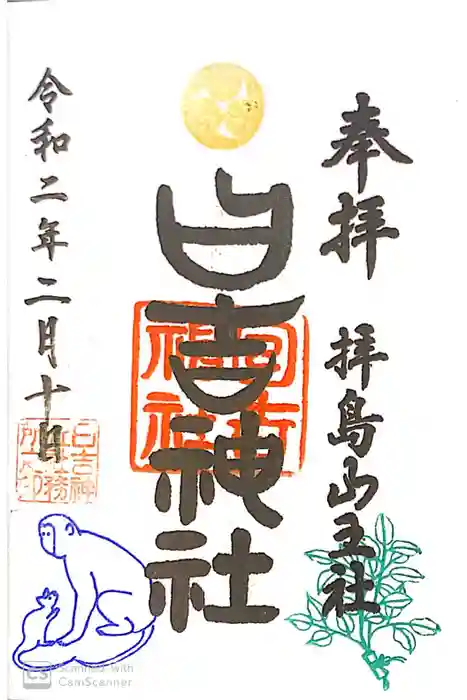 奉拝 拝島山王社
日吉神社
日吉神社
令和二年二月十日
日吉神
社社務
所之印
CS Scanned with
CamScanner